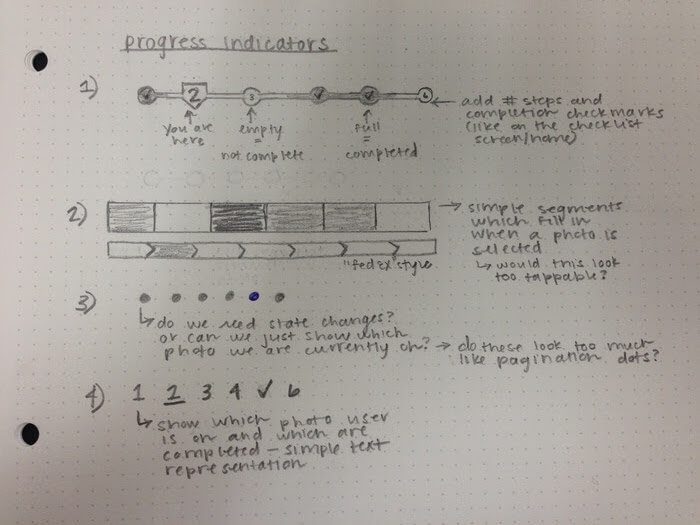 progress indicators
1)
2
3
6
← add # steps and
completion checkmarks
(like on the checklist
screen/home)
you are
here
empty
=
not complete
full
=
completed
2)
→ simple segments
which fill in
when a photo is
selected
↳ would this look
too tappable?
"fedex" style
3)
↳ do we need state changes?
or can we just show which
photo we are currently on? → do these look too much
like pagination dots?
4) 1 2 3 4 ✓ 6
↳ show which photo user
is on and which are
completed - simple text
representation